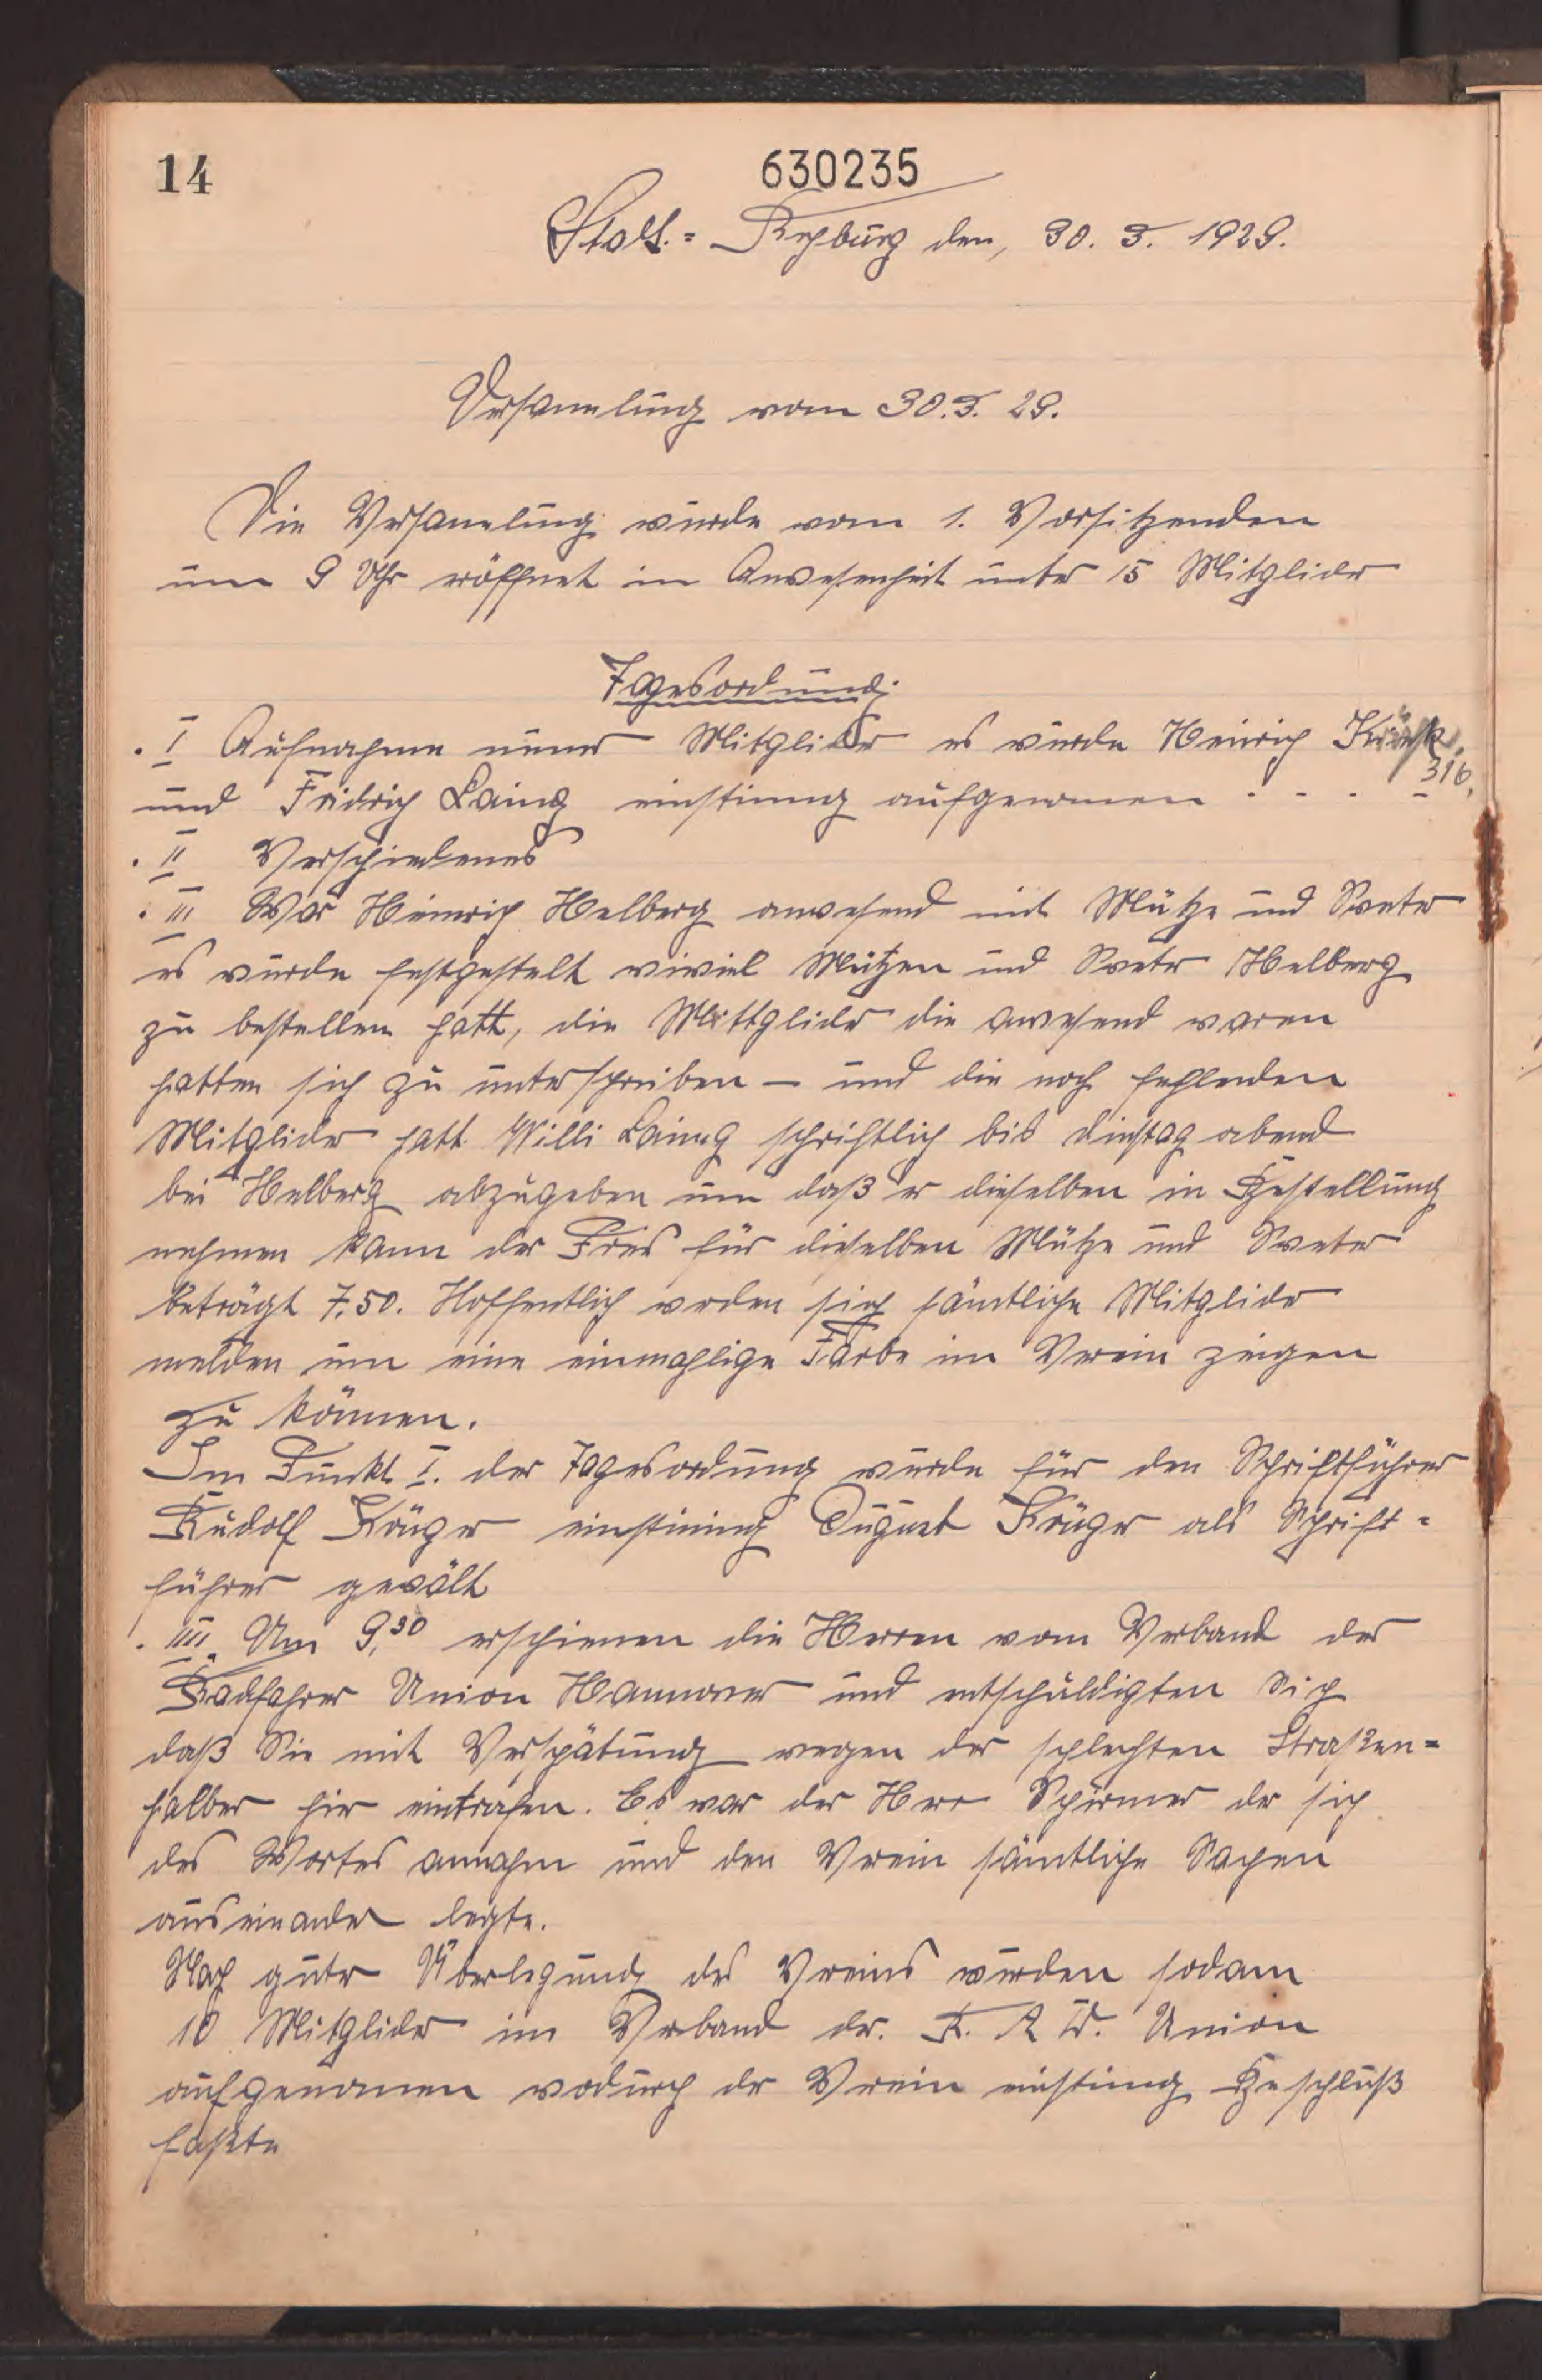 14
630235
Stadt.= Rehburg den, 30. 3. 1929.
Versamlung vom 30.3. 29.
Die Versamlung wurde vom 1. Vorsitzenden
um 9 Uhr eröffnet in Anwesenheit unter 15 Mitglider
Tagesordnung.
. I Aufnahme neuer Mitglider es wurde Heinrich
und Fridrich Laing einstimmg aufgenomen . - . - 316.
. II Verschiedenes
. III War Heinrich Helberg anwesend mit Mütze und Sweter
es wurde festgestelt wiviel Mützen und Swetr Helberg
zu bestellen hatt, die Mittglider die anwesend waren
hatten sich zu unterschreiben – und die noch fehlenden
Mitglider hatt Willi Laing schriftlich bis dinstag abend
bei Helberg abzugeben um daß er dieselben in Bestellung
nehmen kann der Preis für dieselben Mütze und Sweter
beträgt 7.50. Hoffentlich werden sich sämtliche Mitglider
melden um eine einmahlige Farbe im Verein zeigen
zu können.
Im Punkt I. der Tagesordung wurde für den Schriftführer
Rudolf Krüger einstimig August Krüger als Schrift=
führer gewält
. IIII. Um 9,30 erschienen die Herren vom Verband der
Radfahrer Union Hannover und entschuldigten Sich
daß Sie mit Verspätung wegen der schlechten Straßen=
halber hir eintrafen. Es war der Herr Schirmer der sich
des Wortes annahm und den Verein sämtliche Sachen
auseinander legte.
Nach guter Überlegung des Vereins wurden sodann
10 Mitglider im Verband dr. R. A D. Union
aufgenomen wodurch dr Verein einstimg Beschluß
faßte